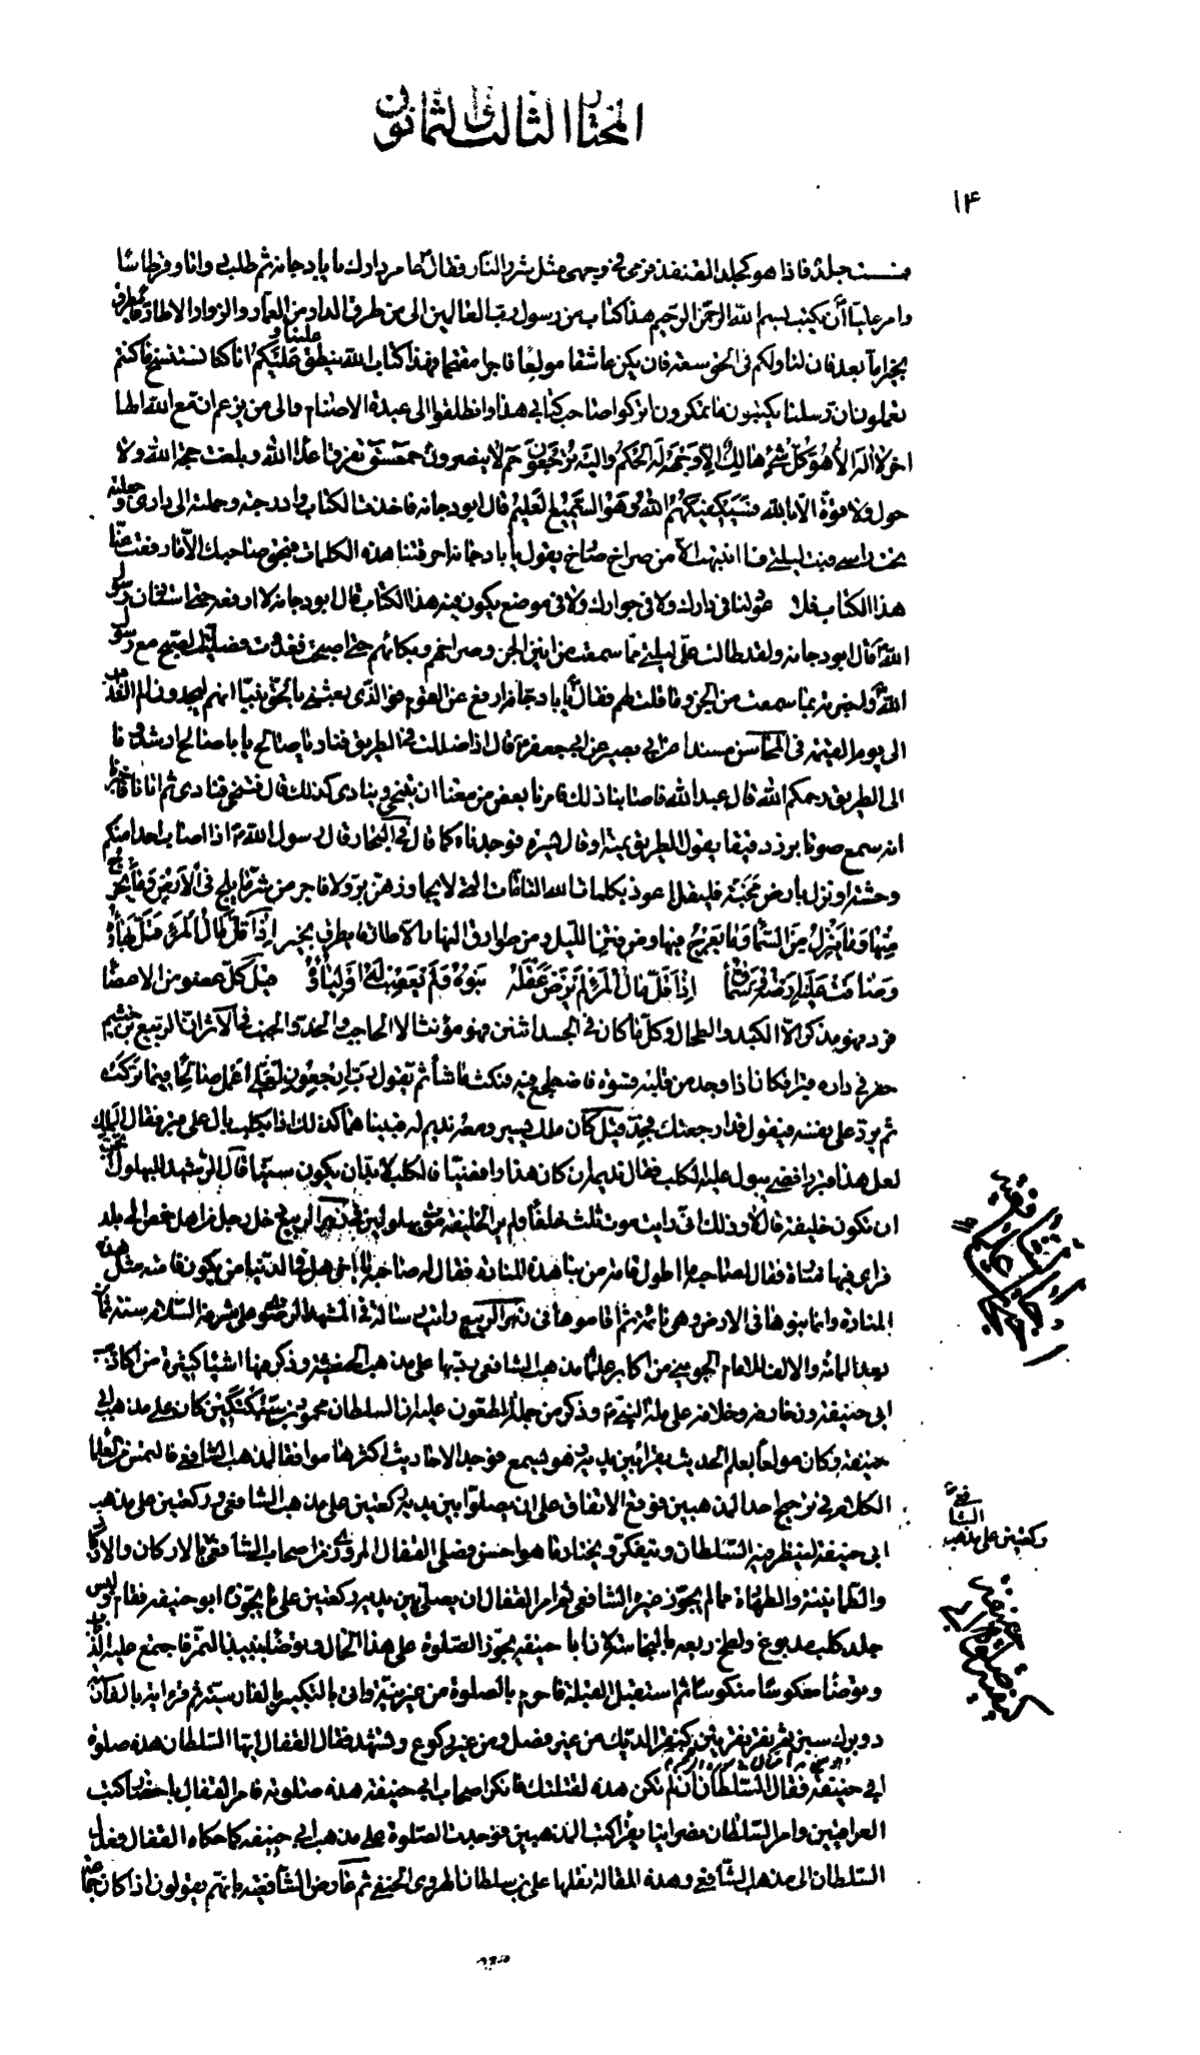 المختار الثالث الثمانون
١۴
جلده فاذا هو كجلد القنفذ فرمى فی وجهی مثل شرر النار فقال عامر دارك يا ابا دجانة ثم طلب دواتا و قرطاسًا
وامر عليّا أن يكتب بسم الله الرحمن الرحيم هذا كتاب من رسول رب العالمين الى من طرق الدار من العمار والزوار الا طارقا يطرق
بخير اما بعد فان لنا ولكم فی الحق سعة فان يكن عاشقا مولعا او فاجرا مقتحما فهذا كتاب الله ينطق علينا وعليكم انا كنا نستنسخ ما كنتم
تعملون ان رسلنا يكتبون ما تمكرون اتركوا صاحب كتابی هذا وانطلقوا الى عبدة الاصنام والى من يزعم ان مع الله الها
اخر لا اله الا هو كل شیء هالك الا وجهه له الحكم واليه ترجعون حم لا ينصرون حمعسق تفرق اعداء الله وبلغت حجة الله ولا
حول ولا قوة الا بالله فسيكفيكهم الله وهو السميع العليم قال ابو دجانة فاخذت الكتاب وادرجته وحملته الى داری وجعلته
تحت راسی فبت ليلتی فما انتبهت الا من صراخ صارخ يقول يا ابا دجانة احرقتنا هذه الكلمات فبحق صاحبك الا ما رفعت عنا
هذا الكتاب فلا عود لنا فی دارك ولا فی جوارك ولا فی موضع يكون فيه هذا الكتاب قال ابو دجانة لا ارفعه حتى استاذن رسول
الله قال ابو دجانة ولقد طالت علی ليلتی مما سمعت من انين الجن وصراخهم وبكائهم حتى اصبحت فغدوت فصليت الصبح مع رسول
الله واخبرته بما سمعت من الجن وما قلت لهم فقال يا ابا دجانة ارفع عن القوم فو الذی بعثنی بالحق نبيا انهم ليجدون الم العذاب
الى يوم القيمة فی المحاسن مسندا عن ابی بصير عن ابی جعفر قال اذا ضللت فی الطريق فناد يا صالح يا ابا صالح ارشدونا
الى الطريق رحمكم الله قال عبد الله فاصابنا ذلك فامرنا بعض من معنا ان يتنحى وينادی كذلك قال فتنحى فنادى ثم اتانا فاخبرنا
انه سمع صوتا برز دقيقا يقول الطريق يمنة او قال يسرة فوجدناه كما قال فی البحار قال رسول الله اذا اصاب احدا منكم
وحشة او نزل بارض مجنة فليقل اعوذ بكلمات الله التامات التی لا يجاوزهن بر ولا فاجر من شر ما يلج فی الارض وما يخرج
منها وما ينزل من السماء وما يعرج فيها ومن فتن الليل ومن طوارق النهار الا طارقا يطرق بخير اذا قل مال المرء قل بهاؤه
وضاقت عليه ارضه وسماؤه اذا قل مال المرء لم يرض عقله بنوه ولم يغضب له اولياؤه قيل كل عضو من الاعضاء
فرد فهو مذكر الا الكبد والطحال وكل ما كان فی الجسد اثنين فهو مؤنث الا الحاجب والخد والجنب فی الاثر ان الربيع بن خثيم
حفر فی داره قبرا فكان اذا وجد من قلبه قسوة فاضطجع فيه فمكث ما شاء ثم يقول رب ارجعون لعلی اعمل صالحا فيما تركت
ثم يرد على نفسه فيقول قد ارجعتك فجد قيل كان ملك يسير ومعه نديم له فبينا هما كذلك اذا بكلب بال على قبر فقال الملك
لعل هذا قبر رافضی يبول عليه الكلب فقال نديمه ان كان هذا رافضيا فالكلب لا بد ان يكون سنيا قال الرشيد للبهلول تحب
ان تكون خليفة قال لا وذلك انی رايت موت ثلث خلفاء ولم ير الخليفة موت بهلولين فی زهر الربيع دخل رجل من اهل حمص الى بلد
فرأى فيها منارة فقال لصاحبه ما اطول قامة من بنى هذه المنارة فقال له صاحبه يا اخی هل فی الدنيا من يكون قامته مثل هذه
المنارة وانما بنوها فی الارض وهی نائمة ثم اقاموها فی زهر الربيع رايت رسالة فی المشهد الرضوی على مشرفه السلام سنة ثمان
بعد المائة والالف للامام الجوينی من اكابر علماء مذهب الشافعی رد بها على مذهب الحنفية وذكر فيها اشياء كثيرة من اكاذيب
ابی حنيفة وتعارضه وخلافه على ملة النبی وذكر من جملة المطعون عليه ان السلطان محمود بن سبكتكين كان على مذهب ابی
حنيفة وكان مولعا بعلم الحديث يقرء بين يديه وهو يسمع فوجد الاحاديث اكثرها موافقا لمذهب الشافعی فالتمس من العلماء
الكلام فی ترجيح احد المذهبين فوقع الاتفاق على ان يصلوا بين يديه ركعتين على مذهب الشافعی وركعتين على مذهب
ابی حنيفة لينظر فيه السلطان ويتفكر ويختار ما هو احسن فصلى القفال المروزی من اصحاب الشافعی بالاركان والاذكار
والطمانينة والطهارة مما لم يجوز غيره الشافعی ثم امر القفال ان يصلی بين يديه ركعتين على ما يجوز ابو حنيفة فقام ولبس
جلد كلب مدبوغ ولطخ ربعه بالنجاسة لان ابا حنيفة يجوز الصلوة على هذا الحال وتوضا بنبيذ التمر فاجتمع عليه الذباب
وتوضا معكوسا منكوسا ثم استقبل القبلة فاحرم بالصلوة من غير نية واتى بالتكبير بالفارسية ثم قرا آية بالفارسية
دو برك سبز ثم نقر نقرتين كنقر الديك من غير فصل ومن غير ركوع وتشهد فقال القفال ايها السلطان هذه صلوة
ابی حنيفة فقال السلطان ان لم تكن هذه لقتلتك فانكر اصحاب ابی حنيفة هذه صلوته فامر القفال باحضار كتب
العراقيين وامر السلطان نصرانيا يقرأ كتب المذهبين فوجدت الصلوة على مذهب ابی حنيفة كما حكاه القفال فعدل
السلطان الى مذهب الشافعی وهذه المقالة نقلها على بن سلطان الهروی الحنفی ثم عارض الشافعية بانهم يقولون اذا كان
الشافعی
وركعتين على مذهب